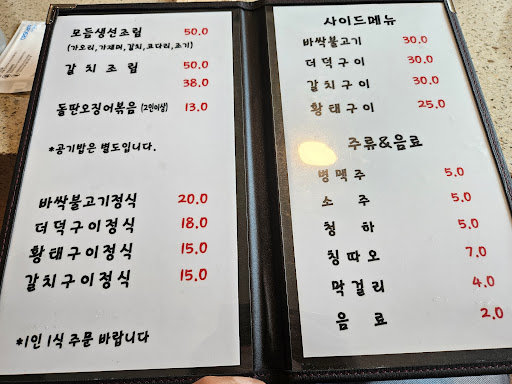 모듬생선조림 50.0
(가오리, 가재미, 갈치, 코다리, 조기)
갈치조림 50.0
38.0
돌판오징어볶음 (2인이상) 13.0
*공기밥은 별도입니다.
바싹불고기정식 20.0
더덕구이정식 18.0
황태구이정식 15.0
갈치구이정식 15.0
*1인 1식 주문 바랍니다
사이드메뉴
바싹불고기 30.0
더덕구이 30.0
갈치구이 30.0
황태구이 25.0
주류&음료
병맥주 5.0
소주 5.0
청하 5.0
칭따오 7.0
막걸리 4.0
음료 2.0